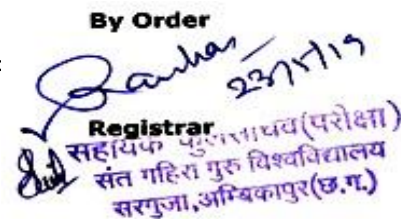 By Order
23/5/19
Registrar
सहायक कुलसचिव (परीक्षा)
संत गहिरा गुरु विश्वविद्यालय
सरगुजा,अम्बिकापुर(छ.ग.)